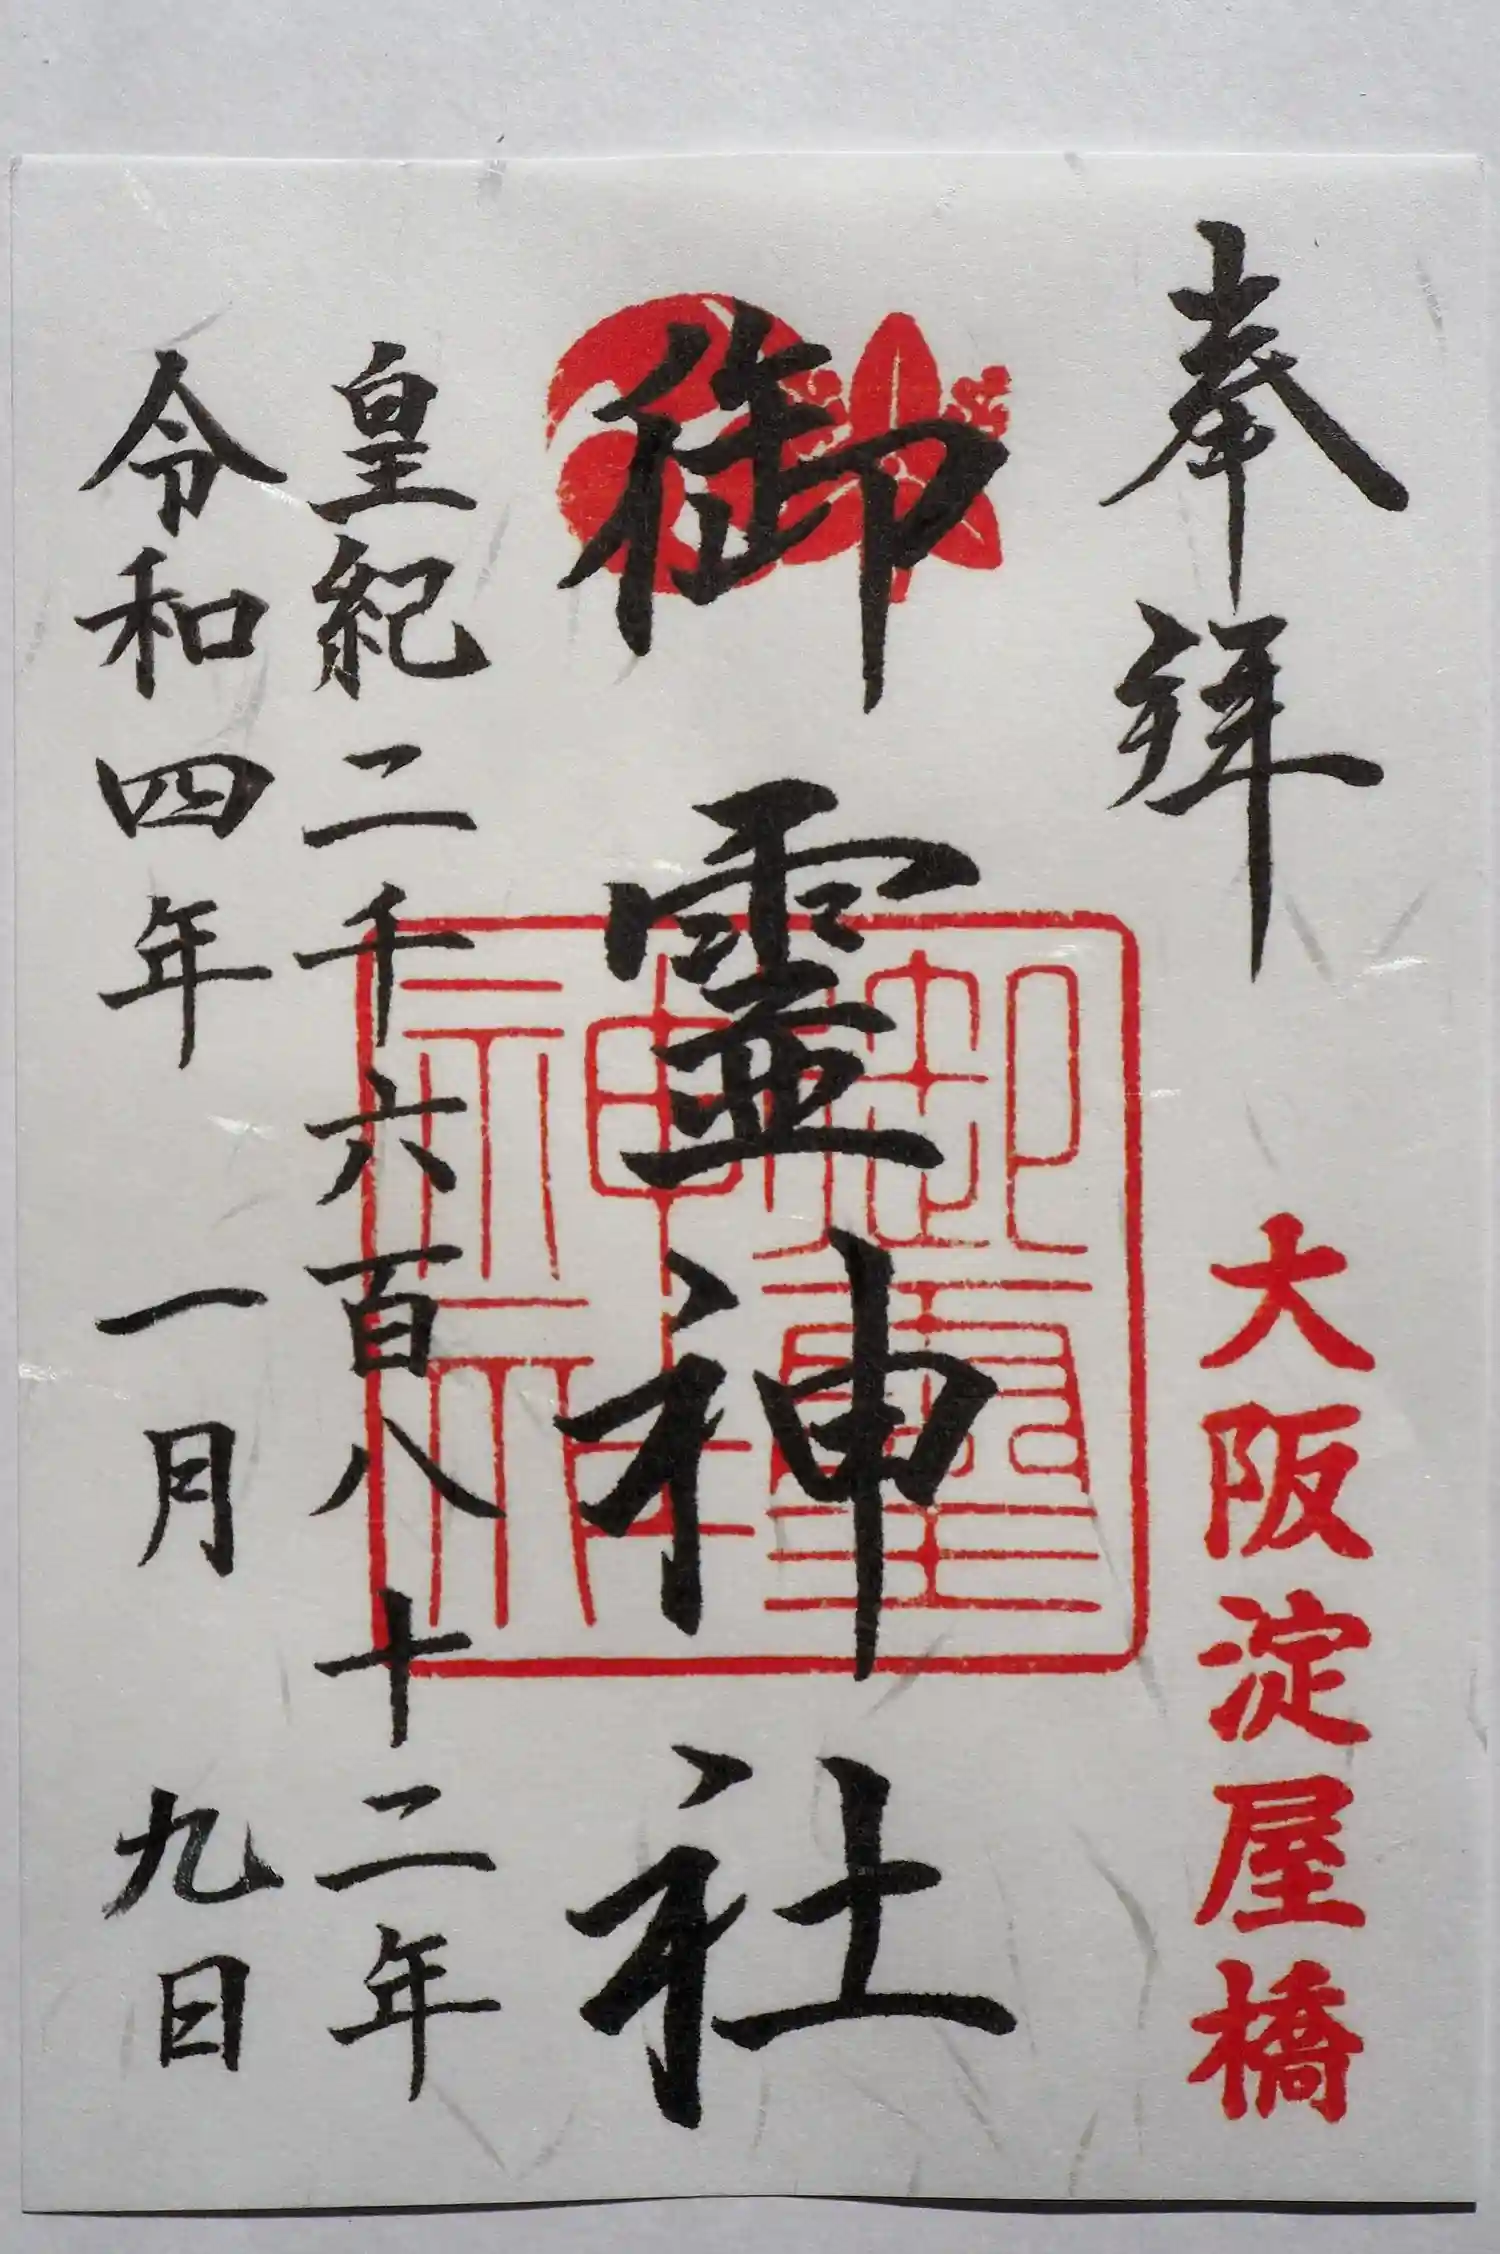 奉拜
大阪淀屋橋
御霊神社
皇紀二千六百八十二年
令和四年 一月 九日